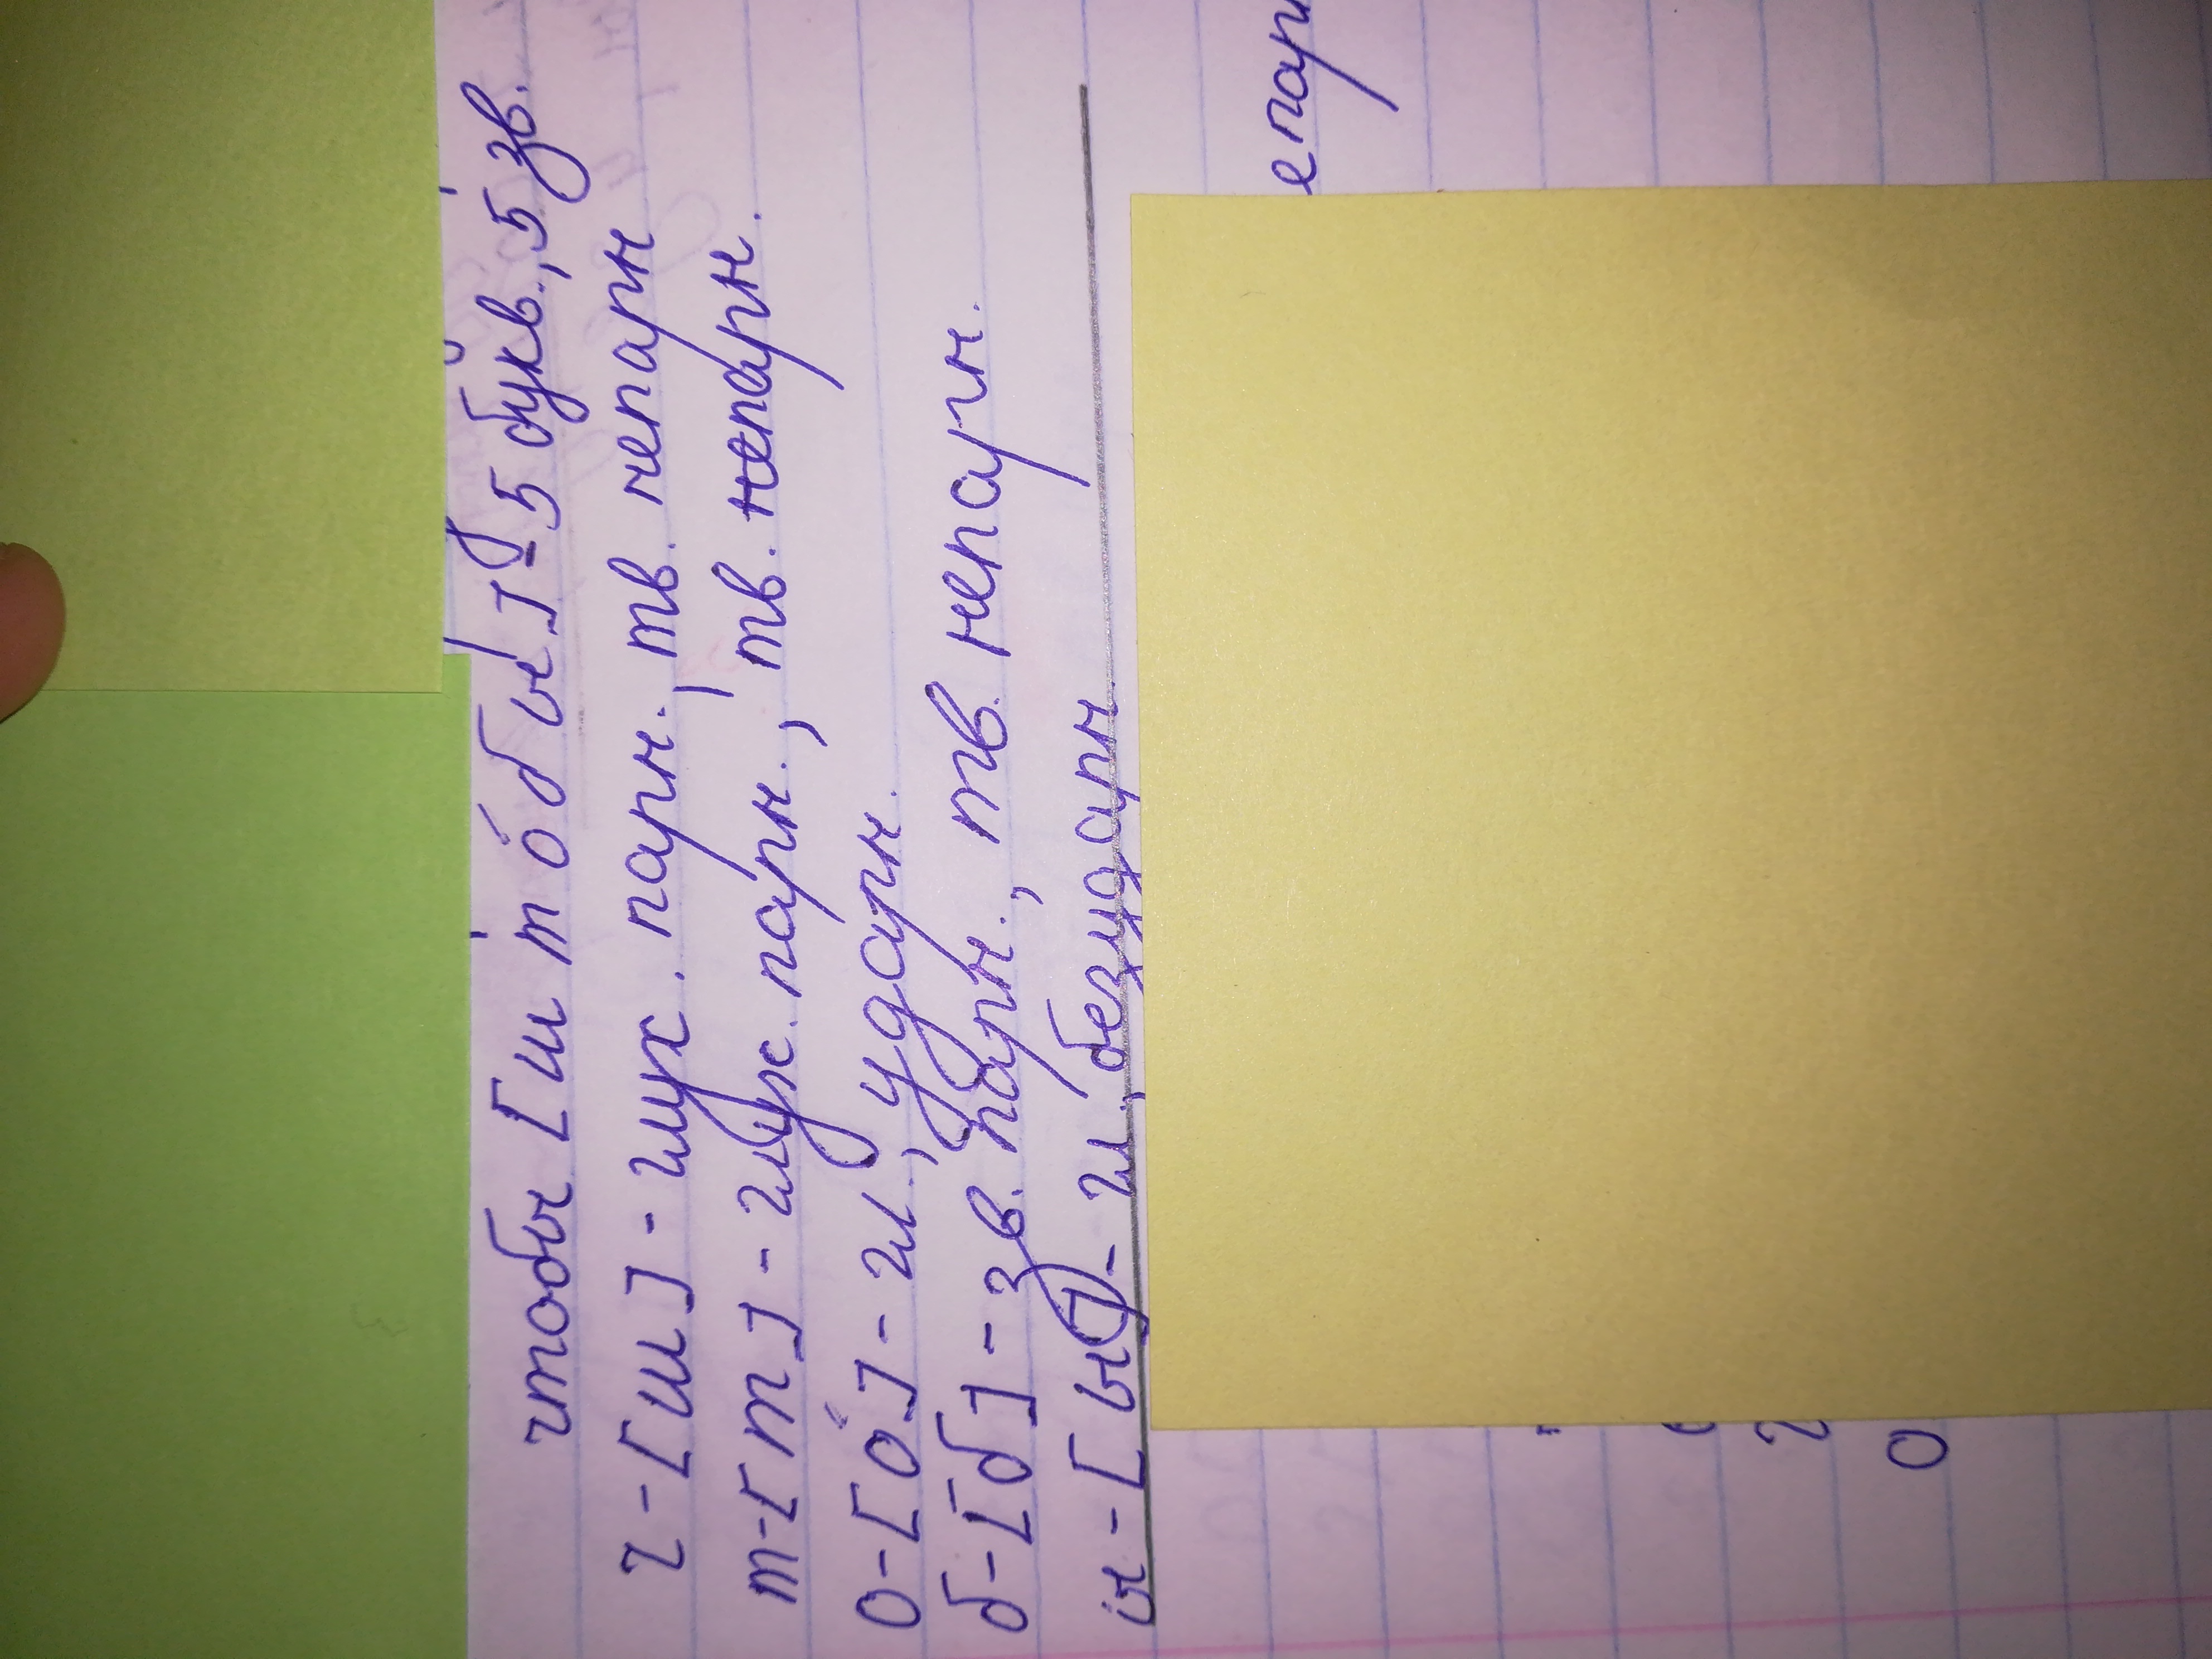 чтобы [ш т о́ б ы] - 5 букв., 5 зв.
ч - [ш] - глух. парн., тв. непарн
т - [т] - глух. парн., тв. непарн.
о - [о́] - гл., ударн.
б - [б] - зв. парн., тв. непарн.
ы - [ы] - гл, безударн.
епарн